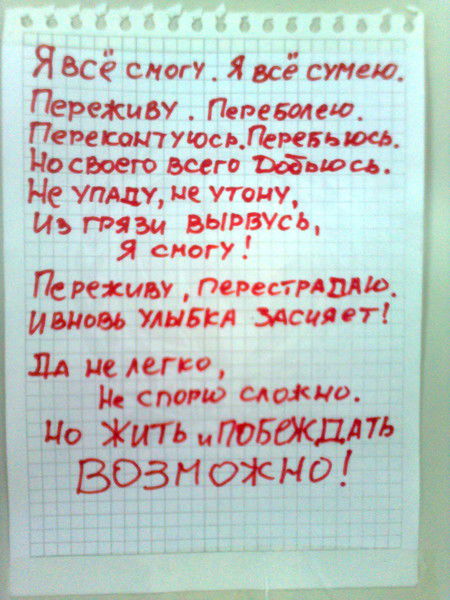 Я всё смогу. Я всё сумею.
Переживу. Переболею.
Переконтуюсь. Перебьюсь.
Но своего всего Добьюсь.
Не упаду, не утону,
Из грязи вырвусь,
Я смогу!
Переживу, перестрадаю.
И вновь улыбка засияет!
Да не легко,
Не спорю сложно.
Но жить и побеждать
ВОЗМОЖНО!